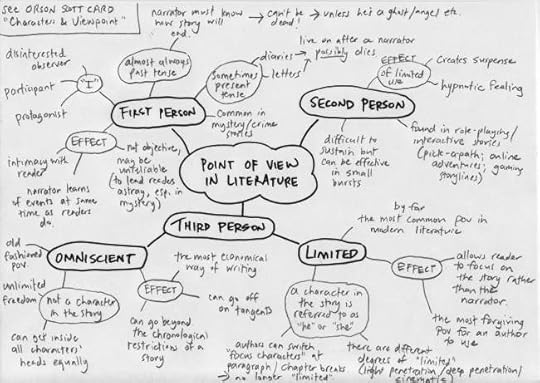 SEE ORSON SOTT CARD
"Characters & Viewpoint"
narrator must know
how story will
end.
can't be
dead!
unless he's a ghost/angel etc.
disinterested
observer
participant
protagonist
"I"
almost always
past tense
Sometimes
present
tense
diaries
letters
live on after a narrator
possibly dies
FIRST PERSON
Common in
mystery/crime
stories
EFFECT
intimacy with
reader
narrator learns
of events at same
time as readers
do.
not objective,
may be
unreliable
(to lead readers
astray, esp. in
mystery)
POINT OF VIEW
IN LITERATURE
SECOND PERSON
EFFECT
of limited
use
Creates suspense
hypnotic feeling
difficult to
sustain but
can be effective
in small
bursts
found in role-playing/
interactive stories
(pick-a-path; online
adventures; gaming
storylines)
THIRD PERSON
OMNISCIENT
old
fashioned
pov.
unlimited
freedom
not a character
in the story
can get inside
all characters'
heads equally
EFFECT
the most economical
way of writing
can go off
on tangents
can go beyond
the chronological
restrictions of a
story
LIMITED
by far
the most common pov in
modern literature
EFFECT
allows reader
to focus on
the story rather
than the
narrator.
the most forgiving
pov for an author to
use
a character in
the story is
referred to as
"he" or "she"
authors can switch
"focus characters" at
paragraph / chapter breaks
no longer "limited"
there are different
degrees of "limited"
(light penetration/deep penetration/